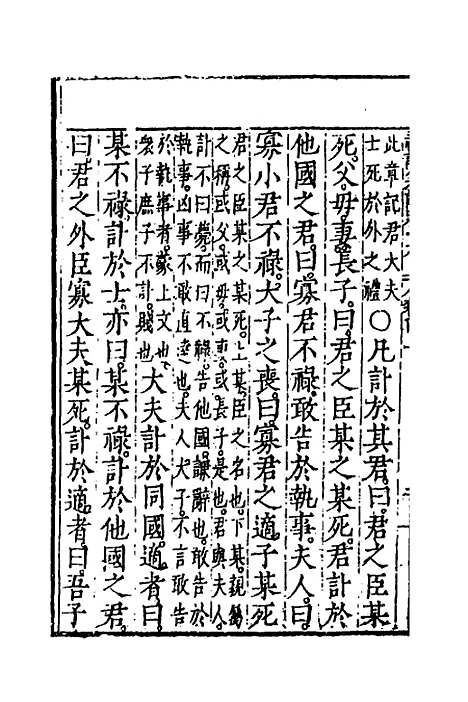 此章記君大夫
士死於外之禮
○凡訃於其君曰。君之臣某
死。父。母。妻。長子。曰。君之臣某之某死。君訃於
他國之君。曰。寡君不祿。敢告於執事。夫人。曰。
寡小君不祿。大子之喪。曰。寡君之適子某死
君之臣某之某死。上某。臣之名也。下某。親屬
之稱。或父。或母。或妻。或長子。是也。君與夫人
訃不曰薨。而曰不祿。告他國。謙辭也。敢告於
執事。凶事不敢直達也。夫人大子。不言敢告
於執事者。蒙上文也。
衆子庶子不訃。賤也
大夫訃於同國。適者。曰。
某不祿。訃於士。亦曰。某不祿。訃於他國之君。
曰。君之外臣寡大夫某死。訃於適者。曰。吾子